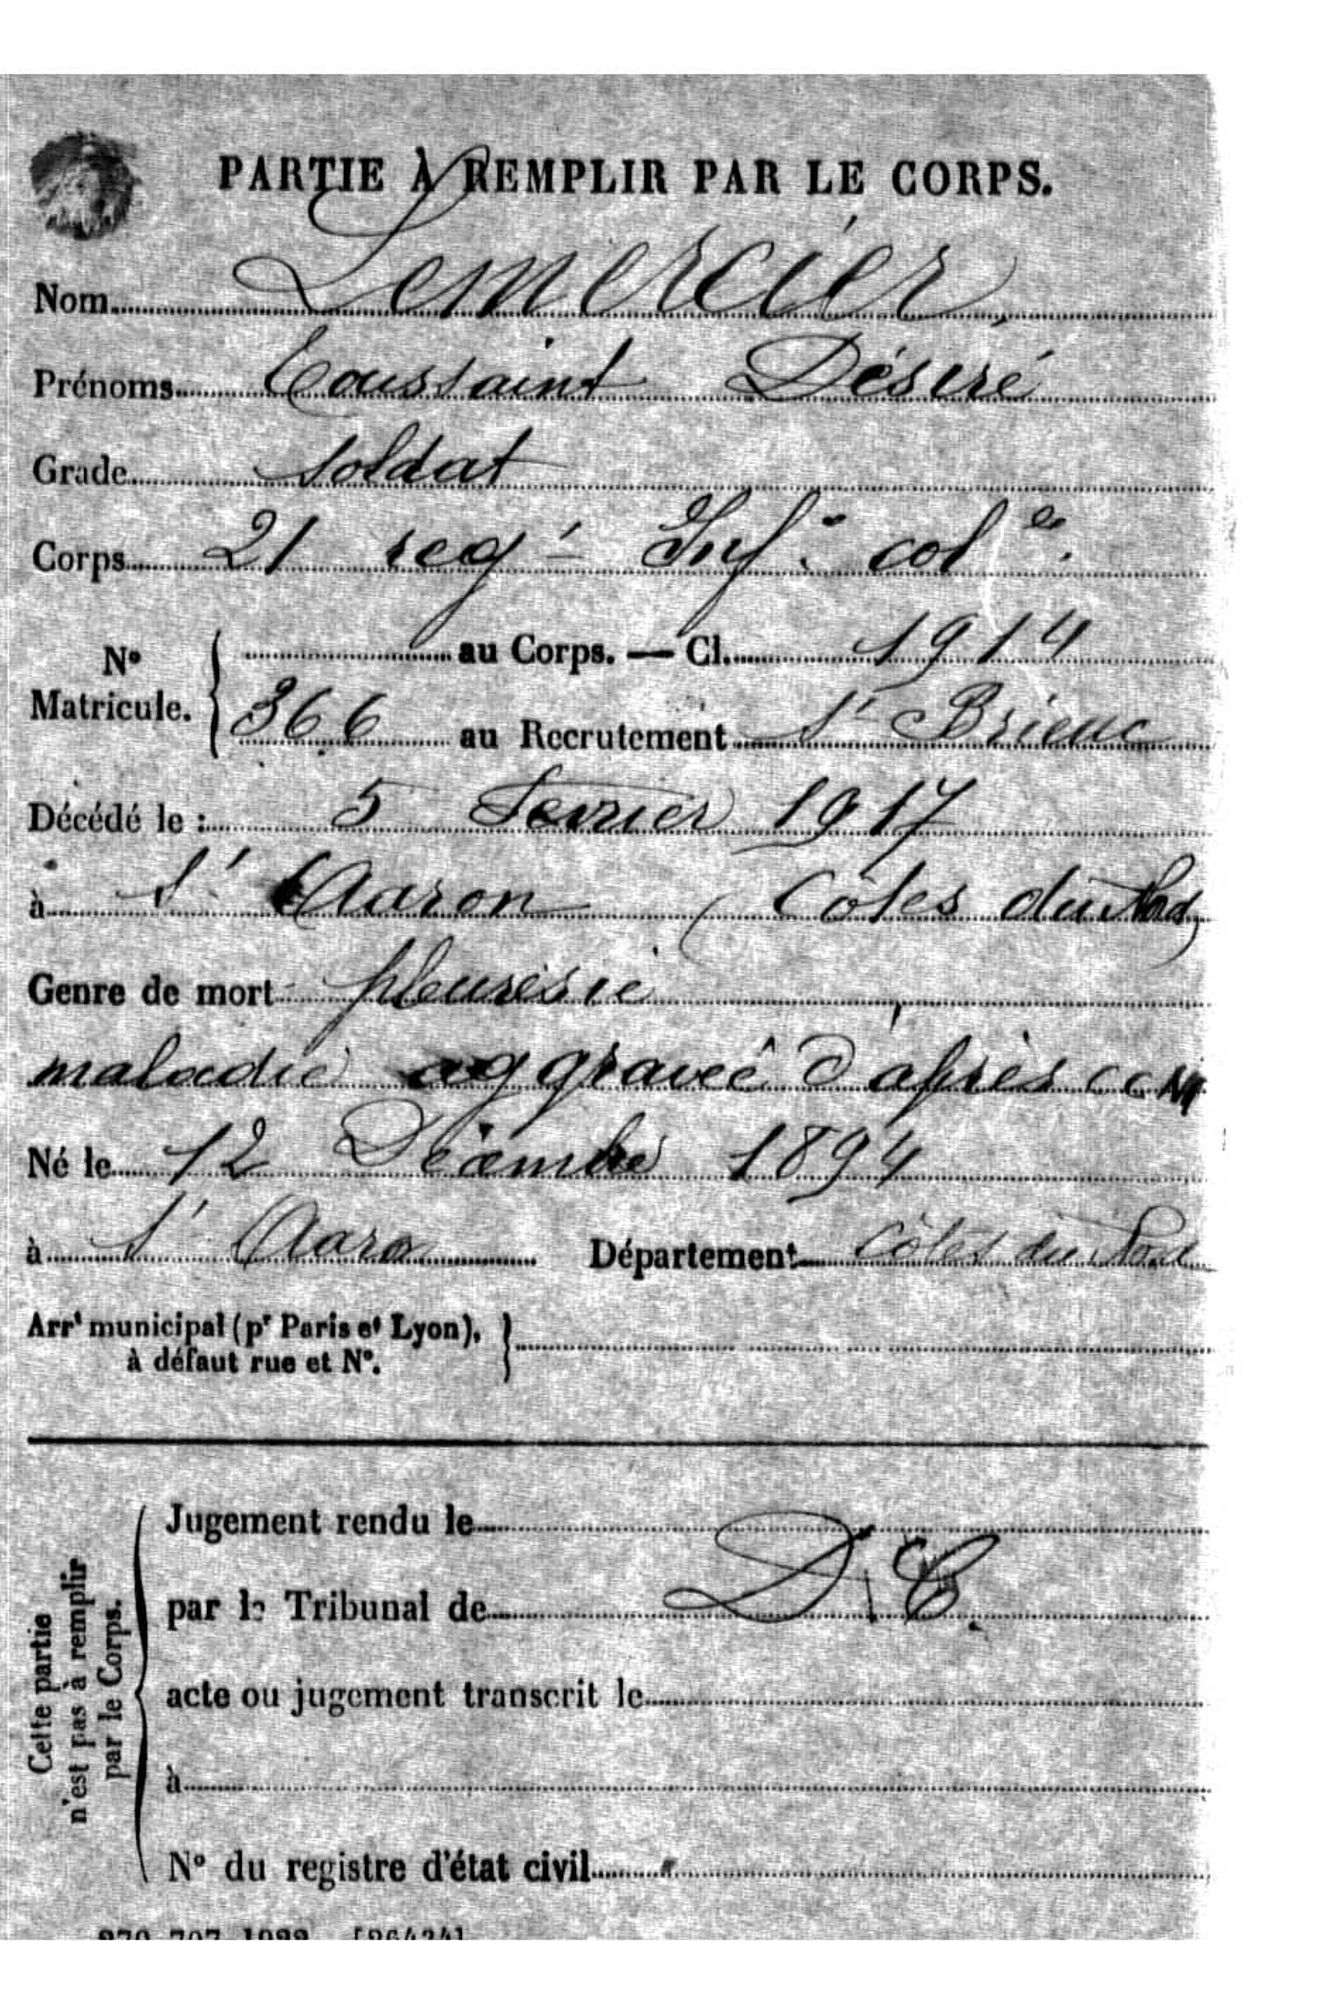 PARTIE À REMPLIR PAR LE CORPS.
Nom Lemercier
Prénoms Toussaint Désiré
Grade soldat
Corps 21 regt Infie colle.
No Matricule. { au Corps. — Cl. 1914
366 au Recrutement St Brieuc
Décédé le : 5 Fevrier 1917
à St Aaron (Côtes du Nord)
Genre de mort pleurésie
maladie aggravée d'après CCM
Né le 12 Décembre 1894
à St Aaron Département Côtes du Nord
Arrt municipal (pr Paris et Lyon), }
à défaut rue et No.
Cette partie
n'est pas à remplir
par le Corps.
Jugement rendu le
par le Tribunal de D.C.
acte ou jugement transcrit le
à
No du registre d'état civil